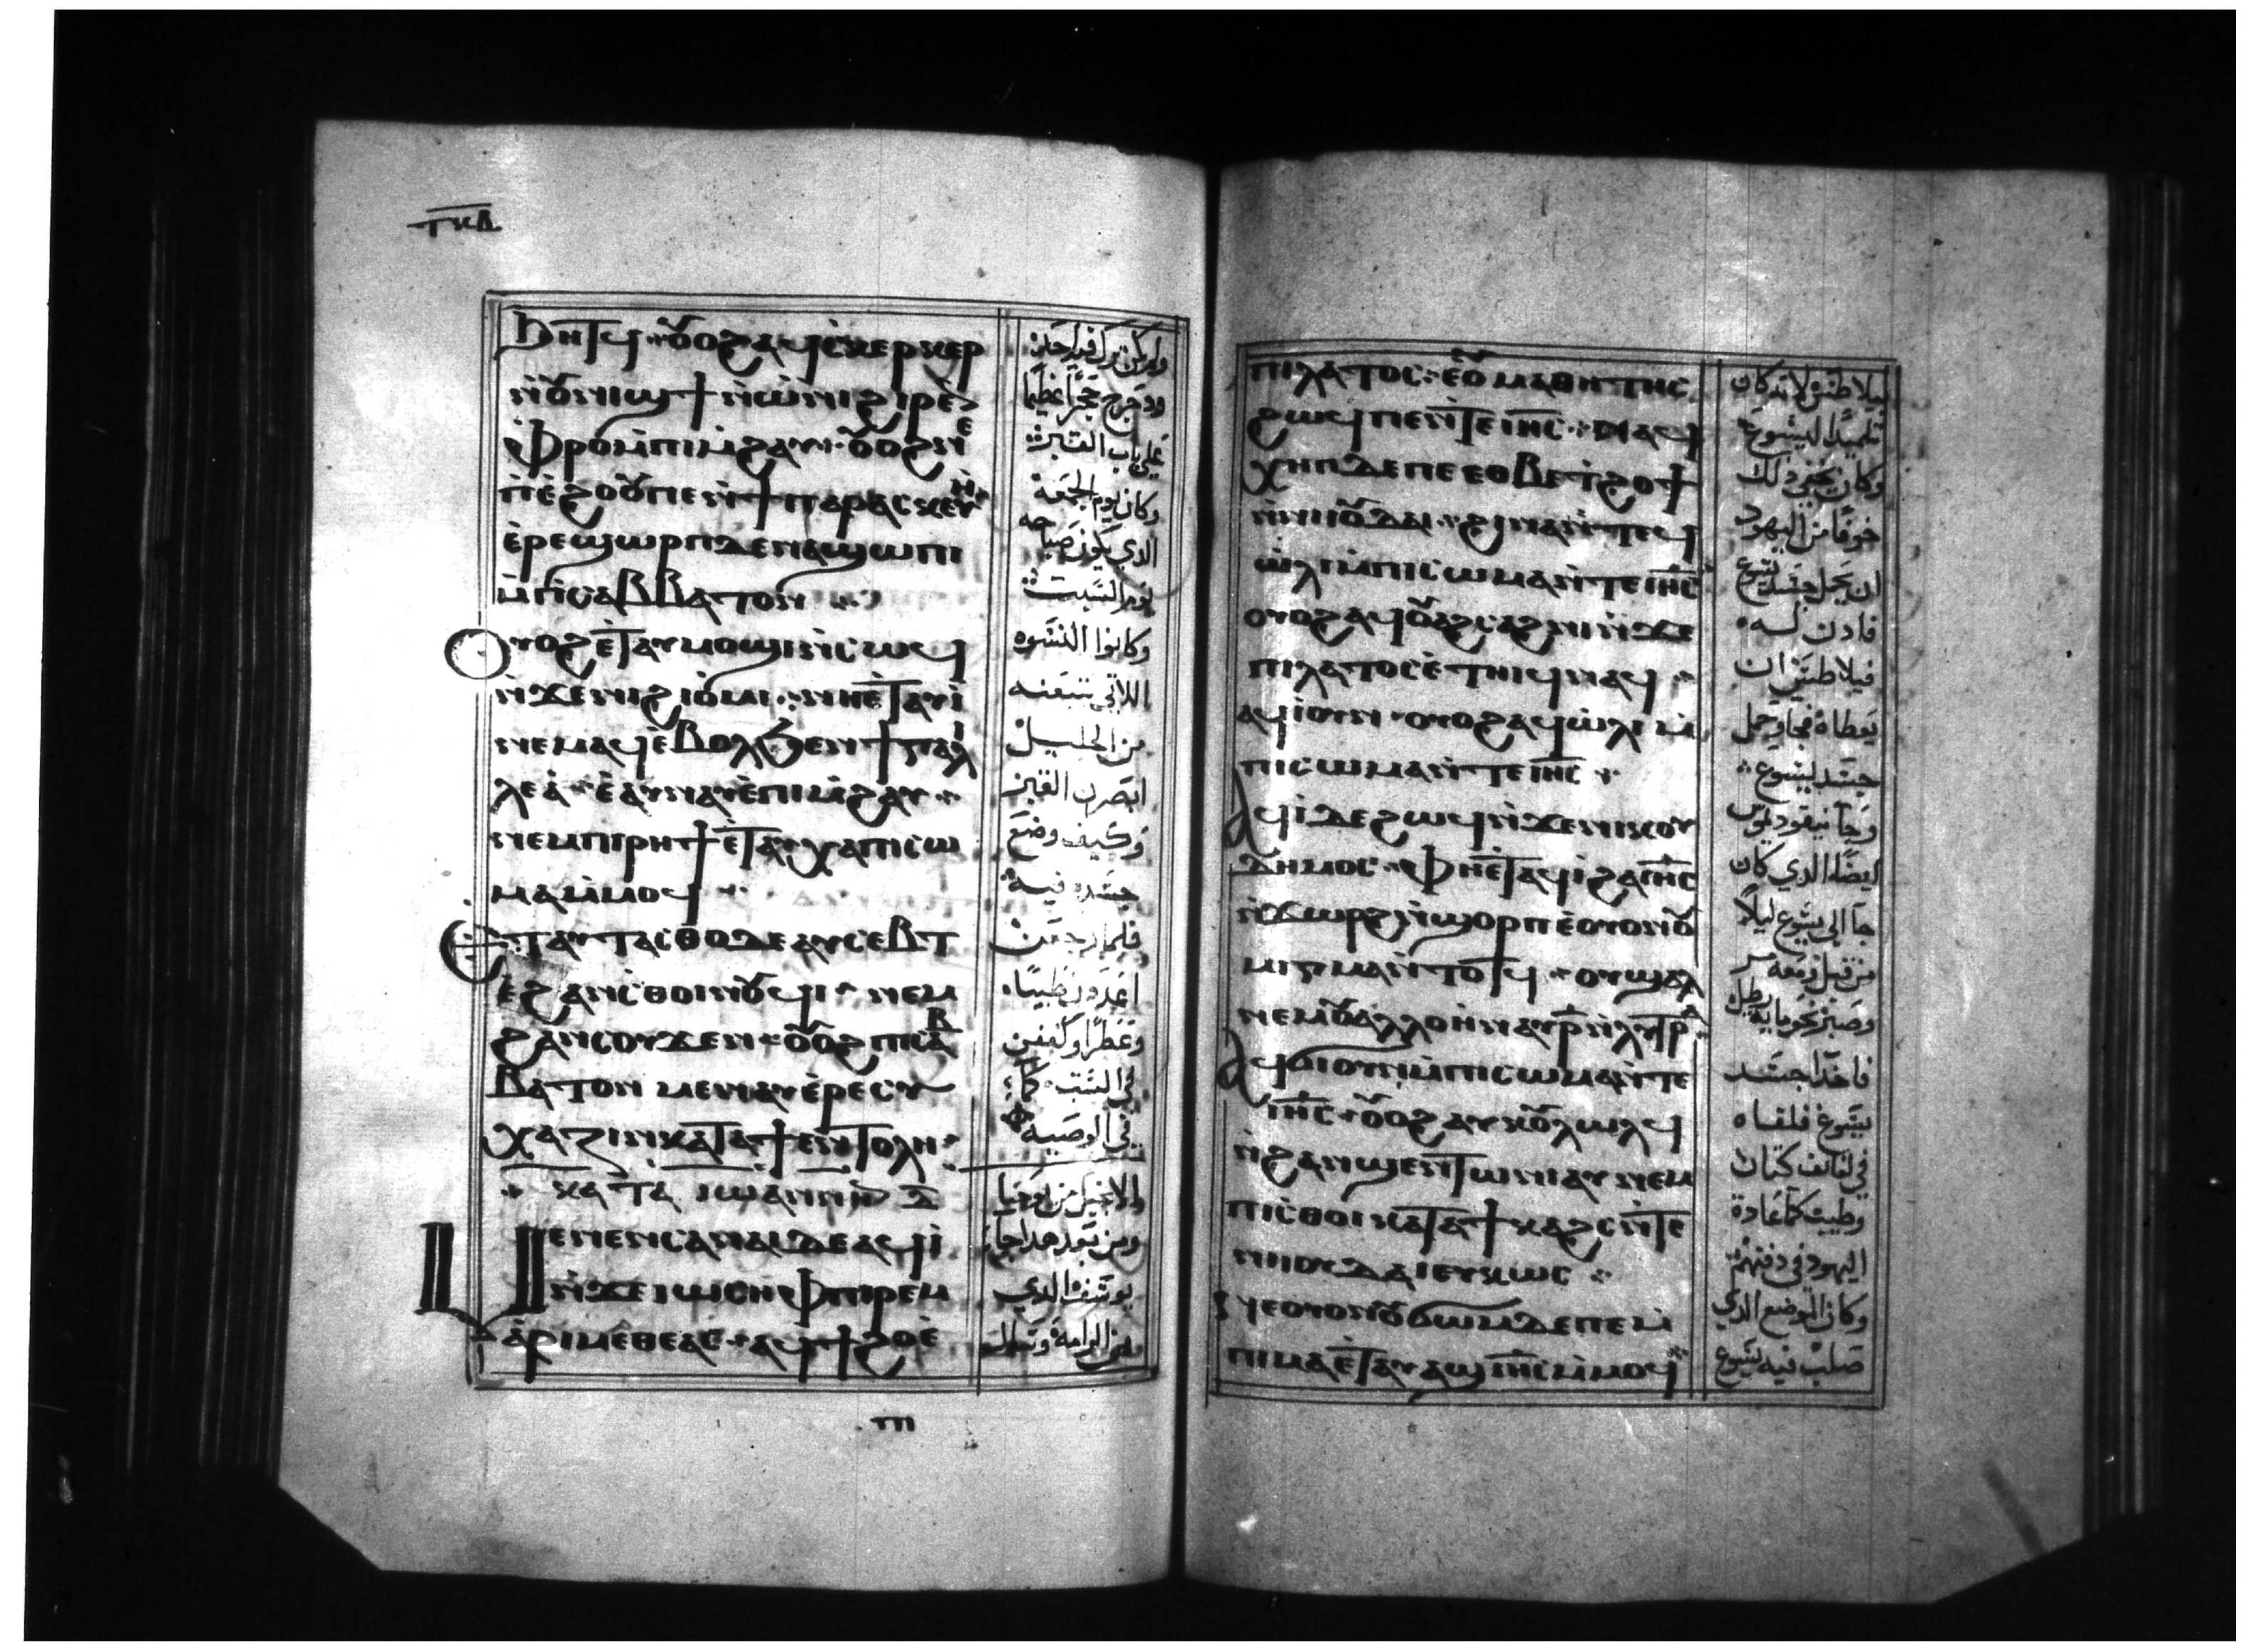 ⲧⲕⲃ
ⲃⲏⲧϥ · ⲟⲩⲟϩ ⲁϥⲥⲕⲉⲣⲕⲉⲣ
ⲛ̀ⲟⲩⲛⲓϣϯ ⲛ̀ⲱⲛⲓ ϩⲓⲣⲉⲛ
ⲫⲣⲟ ⲙ̀ⲡⲓⲙ̀ϩⲁⲩ · ⲟⲩⲟϩ ⲛⲉ
ⲡⲓⲉ̀ϩⲟⲟⲩ ⲡⲉ ⲛ̀ϯⲡⲁⲣⲁⲥⲕⲉⲩⲏ
ⲉ̀ⲣⲉ ϣⲱⲣⲡ ⲇⲉ ⲛⲁϣⲱⲡⲓ
ⲙ̀ⲡⲓⲥⲁⲃⲃⲁⲧⲟⲛ
ⲟⲩⲟϩ ⲉ̀ⲧⲁⲩⲙⲟϣⲓ ⲛ̀ⲥⲱϥ
ⲛ̀ϫⲉ ⲛⲓϩⲓⲟ̀ⲙⲓ · ⲛⲏ ⲉ̀ⲧⲁⲩⲓ̀
ⲛⲉⲙⲁϥ ⲉ̀ⲃⲟⲗ ϧⲉⲛ ϯⲅⲁⲗⲓ
ⲗⲉⲁ̀ · ⲉ̀ⲁⲩⲛⲁⲩ ⲉ̀ⲡⲓⲙ̀ϩⲁⲩ
ⲛⲉⲙ ⲡⲓⲣⲏϯ ⲉ̀ⲧⲁⲩⲭⲁ ⲡⲓⲥⲱ
ⲙⲁ ⲙ̀ⲙⲟϥ
ⲉⲧⲁⲩⲧⲁⲥⲑⲟ ⲇⲉ ⲁⲩⲥⲉⲃⲧ
ⲉ̀ϩⲁⲛⲥ̀ⲑⲟⲓⲛⲟⲩϥⲓ · ⲛⲉⲙ
ϩⲁⲛⲥⲟⲩϫⲉⲛ · ⲟⲩⲟϩ ⲡⲓⲥⲁⲃ
ⲃⲁⲧⲟⲛ ⲙⲉⲛ ⲁⲩⲉ̀ⲣⲉⲥⲩ
ⲭⲁⲍⲓⲛ ⲕⲁⲧⲁ ϯⲉⲛⲧⲟⲗⲏ
ⲕⲁⲧⲁ ⲓⲱⲁⲛⲛⲏⲛ
ⲙⲉⲛⲉⲛⲥⲁ ⲛⲁⲓ ⲇⲉ ⲁϥⲓ̀
ⲛ̀ϫⲉ ⲓⲱⲥⲏⲫ ⲡⲓⲣⲉⲙ
ⲁ̀ⲣⲓⲙⲉⲑⲉⲁⲥ · ⲁϥϯϩⲟ ⲉ̀
ⲡⲓ
ولم يكن ترك فيه احد
ودحرج حجرًا عظيمًا
على باب القبر
وكان يوم الجمعة
الذي يكون صباحه
يوم السبت
وكانوا النسوه
اللاتي تبعنه
من الجليل
ابصرن القبر
وكيف وضع
جسده فيه
فلما رجعن
اعددن طيبًا
وعطرًا وكففن
في السبت كما
في الوصيه
والانجيل من يوحنا
ومن بعد هدا جا
يوسف الدي
من الرامة وسال
ⲡⲓⲗⲁⲧⲟⲥ · ⲉⲟⲩⲙⲁⲑⲏⲧⲏⲥ
ϩⲱϥ ⲡⲉ ⲛ̀ⲧⲉ ⲓⲏⲥ · ⲛⲁϥ
ⲭⲏⲡ ⲇⲉ ⲡⲉ ⲉⲑⲃⲉ ⲧϩⲟϯ
ⲛ̀ⲛⲓⲟⲩⲇⲁⲓ · ϩⲓⲛⲁ ⲛ̀ⲧⲉϥ
ⲱ̀ⲗⲓ ⲙ̀ⲡⲓⲥⲱⲙⲁ ⲛ̀ⲧⲉ ⲓⲏⲥ
ⲟⲩⲟϩ ⲁϥⲟⲩⲁϩⲥⲁϩⲛⲓ ⲛ̀ϫⲉ
ⲡⲓⲗⲁⲧⲟⲥ ⲉ̀ⲧⲏⲓϥ ⲛⲁϥ
ⲁϥⲓ̀ ⲟⲩⲛ · ⲟⲩⲟϩ ⲁϥⲱ̀ⲗⲓ ⲙ̀
ⲡⲓⲥⲱⲙⲁ ⲛ̀ⲧⲉ ⲓⲏⲥ
ⲁϥⲓ̀ ⲇⲉ ϩⲱϥ ⲛ̀ϫⲉ ⲛⲓⲕⲟⲩ
ⲇⲏⲙⲟⲥ · ⲫⲏ ⲉ̀ⲧⲁϥⲓ̀ ϩⲁ ⲓⲏⲥ
ⲛ̀ϫⲱⲣϩ ⲛ̀ϣⲟⲣⲡ ⲉ̀ⲟⲩⲟⲛ ⲟⲩ
ⲙⲓⲅⲙⲁ ⲛ̀ⲧⲟⲧϥ · ⲟⲩϣⲁⲗ
ⲛⲉⲙ ⲟⲩⲁⲗⲗⲟⲏ ⲛⲁⲩⲣ̅ ⲛ̀ⲗⲩⲧⲣⲁ
ⲁϥϭⲓ ⲟⲩⲛ ⲙ̀ⲡⲓⲥⲱⲙⲁ ⲛ̀ⲧⲉ
ⲓⲏⲥ · ⲟⲩⲟϩ ⲁⲩⲕⲟⲩⲗⲱⲗϥ
ⲛ̀ϩⲁⲛϣⲉⲛⲧⲱ ⲛⲓⲁⲩ ⲛⲉⲙ
ⲡⲓⲥ̀ⲑⲟⲓ ⲕⲁⲧⲁ ϯⲕⲁϩⲥ ⲛ̀ⲧⲉ
ⲛⲓⲟⲩⲇⲁⲓ ⲉⲩⲕⲱⲥ
ⲛⲉ ⲟⲩⲟⲛ ⲟⲩϭⲱⲙ ⲇⲉ ⲡⲉ ⲙ̀
ⲡⲓⲙⲁ ⲉ̀ⲧⲁⲩⲁϣ ⲓⲏⲥ ⲙ̀ⲙⲟϥ
بيلاطس لانه كان
تلميدًا ليسوع
وكان يخفي دلك
خوفًا من اليهود
ان يحمل جسد يسوع
فادن له
فيلاطس ان
يعطاه فجا وحمل
جسد يسوع
وجا نيقوديموس
ايضًا الدي كان
جا الى يسوع ليلًا
من قبل ومعه مر
وصبر نحو مايه رطل
فاخدا جسد
يسوع فلفاه
في لفايف كتان
وطيب كما عادة
اليهود في دفنهم
وكان الموضع الدي
صلب فيه يسوع